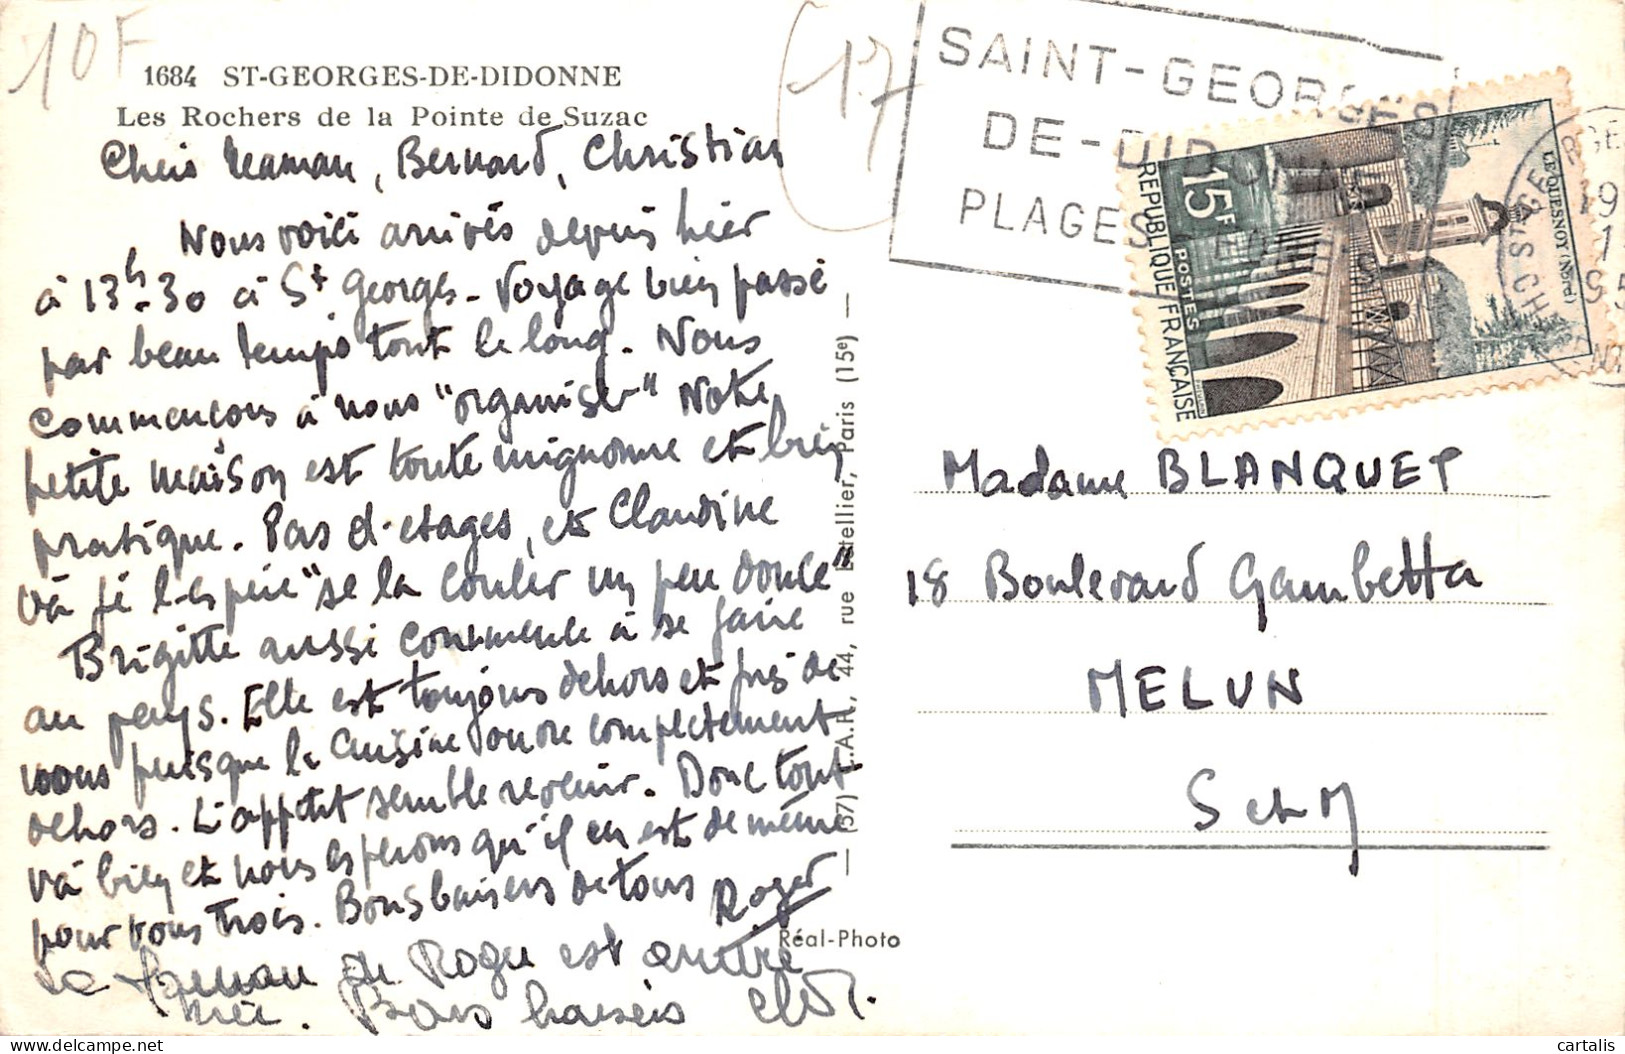 10F
1684 ST-GEORGES-DE-DIDONNE
Les Rochers de la Pointe de Suzac
Chers Maman, Bernard, Christian
Nous voici arrivés depuis hier
à 13h-30 à St Georges - Voyage bien passé
par beau temps tout le long. Nous
commençons à nous "organiser" Notre
petite maison est toute mignonne et bien
pratique. Pas d'etages, et Claudine
va je l'espère "se la couler un peu douce"
Brigitte aussi commence à se faire
au pays. Elle est toujours dehors et près de
nous puisque la cuisine donne complectement
dehors. L'appetit semble revenir. Donc tout
va bien et nous esperons qu'il en est de même
pour vous trois. Bons baisers de tous Roger
La Maman de Roger est
. Bons baisers
(57) L.A.R., 44, rue Letellier, Paris (15e)
Réal-Photo
17
SAINT-GEORGES
DE-DIDONNE
PLAGES
15F
POSTES
REPUBLIQUE FRANÇAISE
LE QUESNOY (Nord)
Madame BLANQUET
18 Boulevard Gambetta
MELUN
S et M
cartalis